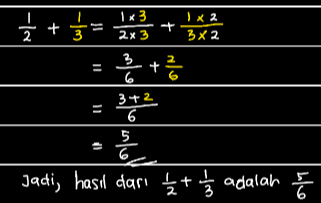 1/2 + 1/3 = 1×3/2×3 + 1×2/3×2
= 3/6 + 2/6
= 3+2/6
= 5/6
Jadi, hasil dari 1/2 + 1/3 adalah 5/6